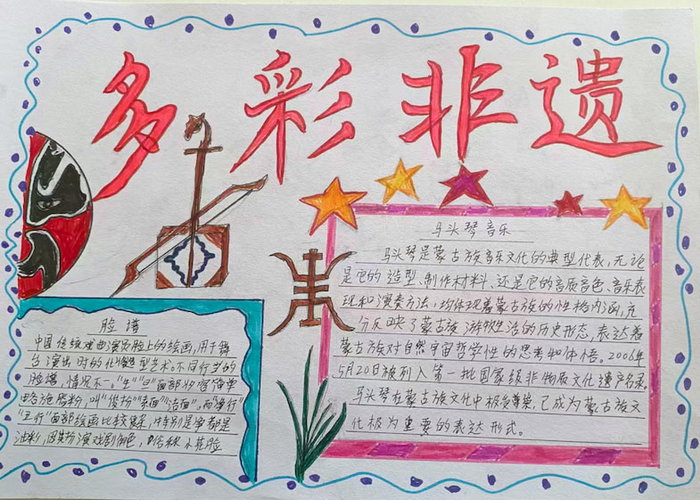 多彩非遗
马头琴音乐
马头琴是蒙古族音乐文化的典型代表,无论
是它的造型、制作材料,还是它的音质音色、音乐表
现和演奏方法,均体现着蒙古族的性格内涵,充
分反映了蒙古族游牧生活的历史形态,表达着
蒙古族对自然宇宙哲学性的思考和体悟。2006年
5月20日被列入第一批国家级非物质文化遗产名录。
马头琴在蒙古族文化中极为尊崇,已成为蒙古族文
化极为重要的表达形式。
脸谱
中国传统戏曲演员脸上的绘画,用于舞
台演出时的化妆造型艺术。不同行当的
脸谱,情况不一。"生""旦"面部妆容简单
略施脂粉,叫"俊扮""素面""洁面"。而"净行"
"丑行"面部绘画比较复杂,特别是净都是